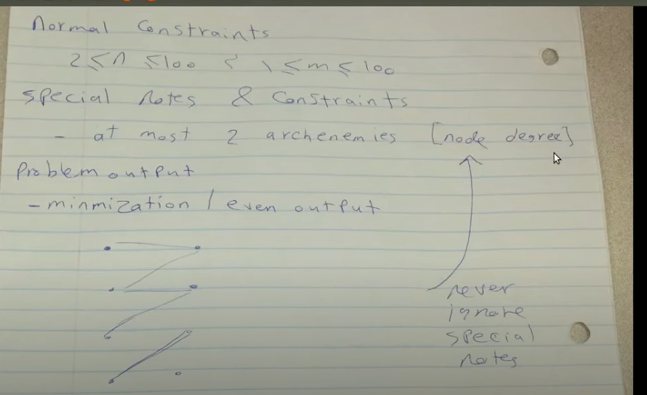 Normal Constraints
2 ≤ n ≤ 100 & 1 ≤ m ≤ 100
special notes & constraints
- at most 2 archenemies [node degree]
Problem output
- minmization / even output
never
ignore
special
notes